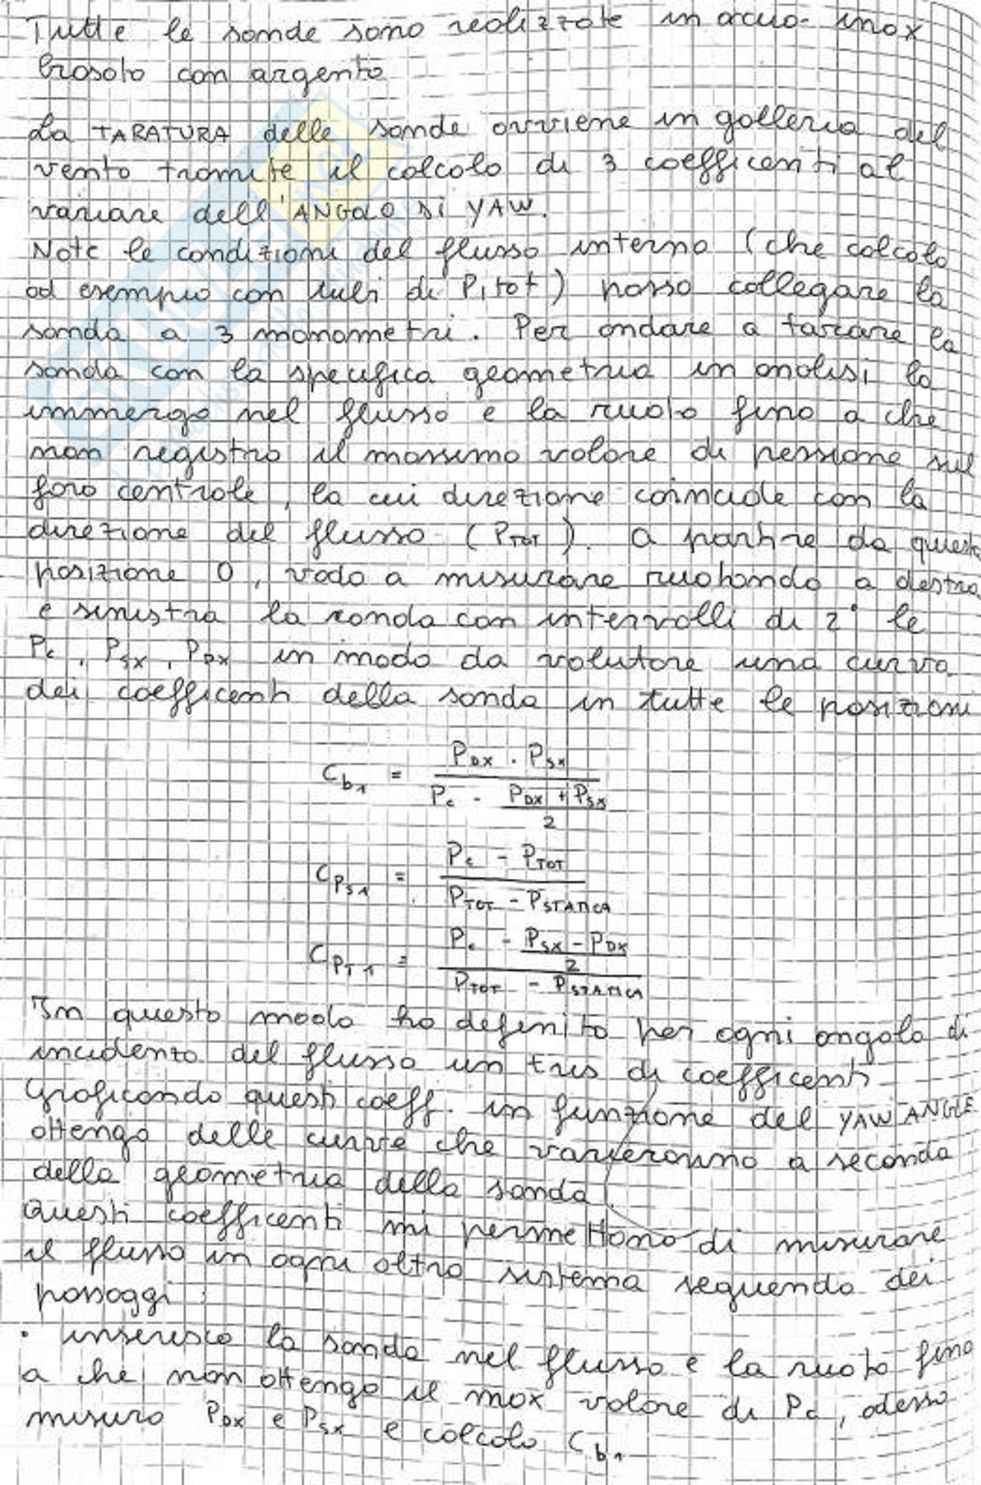 Tutte le sonde sono realizzate in acciaio inox
brasato con argento
La TARATURA delle sonde avviene in galleria del
vento tramite il calcolo di 3 coefficenti al
variare dell'ANGOLO di YAW.
Note le condizioni del flusso interno (che calcolo
ad esempio con tubi di Pitot) posso collegare la
sonda a 3 manometri. Per andare a tarare la
sonda con la specifica geometria in analisi la
immergo nel flusso e la ruoto fino a che
non registro il massimo valore di pressione sul
foro centrale, la cui direzione coincide con la
direzione del flusso (PTOT). A partire da questa
posizione 0, vado a misurare ruotando a destra
e sinistra la sonda con intervalli di 2° le
Pc, Psx, PDx in modo da valutare una curva
dei coefficenti della sonda in tutte le posizioni
Cb1 = PDx - Psx / Pc - PDx + Psx / 2
CPS1 = Pc - PTOT / PTOT - PSTATICA
CPT1 = Pc - Psx - PDx / 2 / PTOT - PSTATICA
In questo modo ho definito per ogni angolo di
incidenza del flusso un tris di coefficenti
Graficando questi coeff. in funzione del YAW ANGLE
ottengo delle curve che varieranno a seconda
della geometria della sonda
Questi coefficenti mi permettono di misurare
il flusso in ogni altro sistema seguendo dei
passaggi:
• inserisco la sonda nel flusso e la ruoto fino
a che non ottengo il max valore di Pc, adesso
misuro PDx e Psx e calcolo Cb1